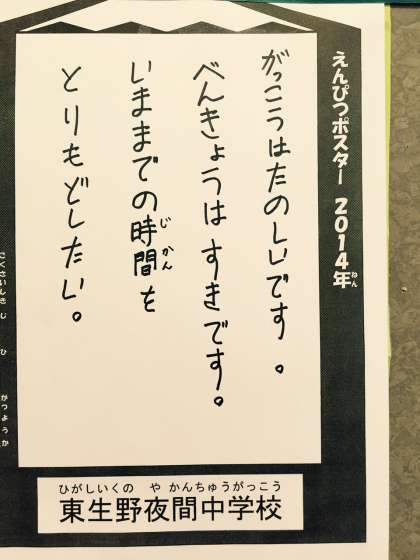 えんぴつポスター 2014年
ねん
がっこうはたのしいです。
べんきょうは すきです。
いままでの時間を
じかん
とりもどしたい。
こくさいしきじ ひ がつようか
ひがしいくの や かんちゅうがっこう
東生野夜間中学校